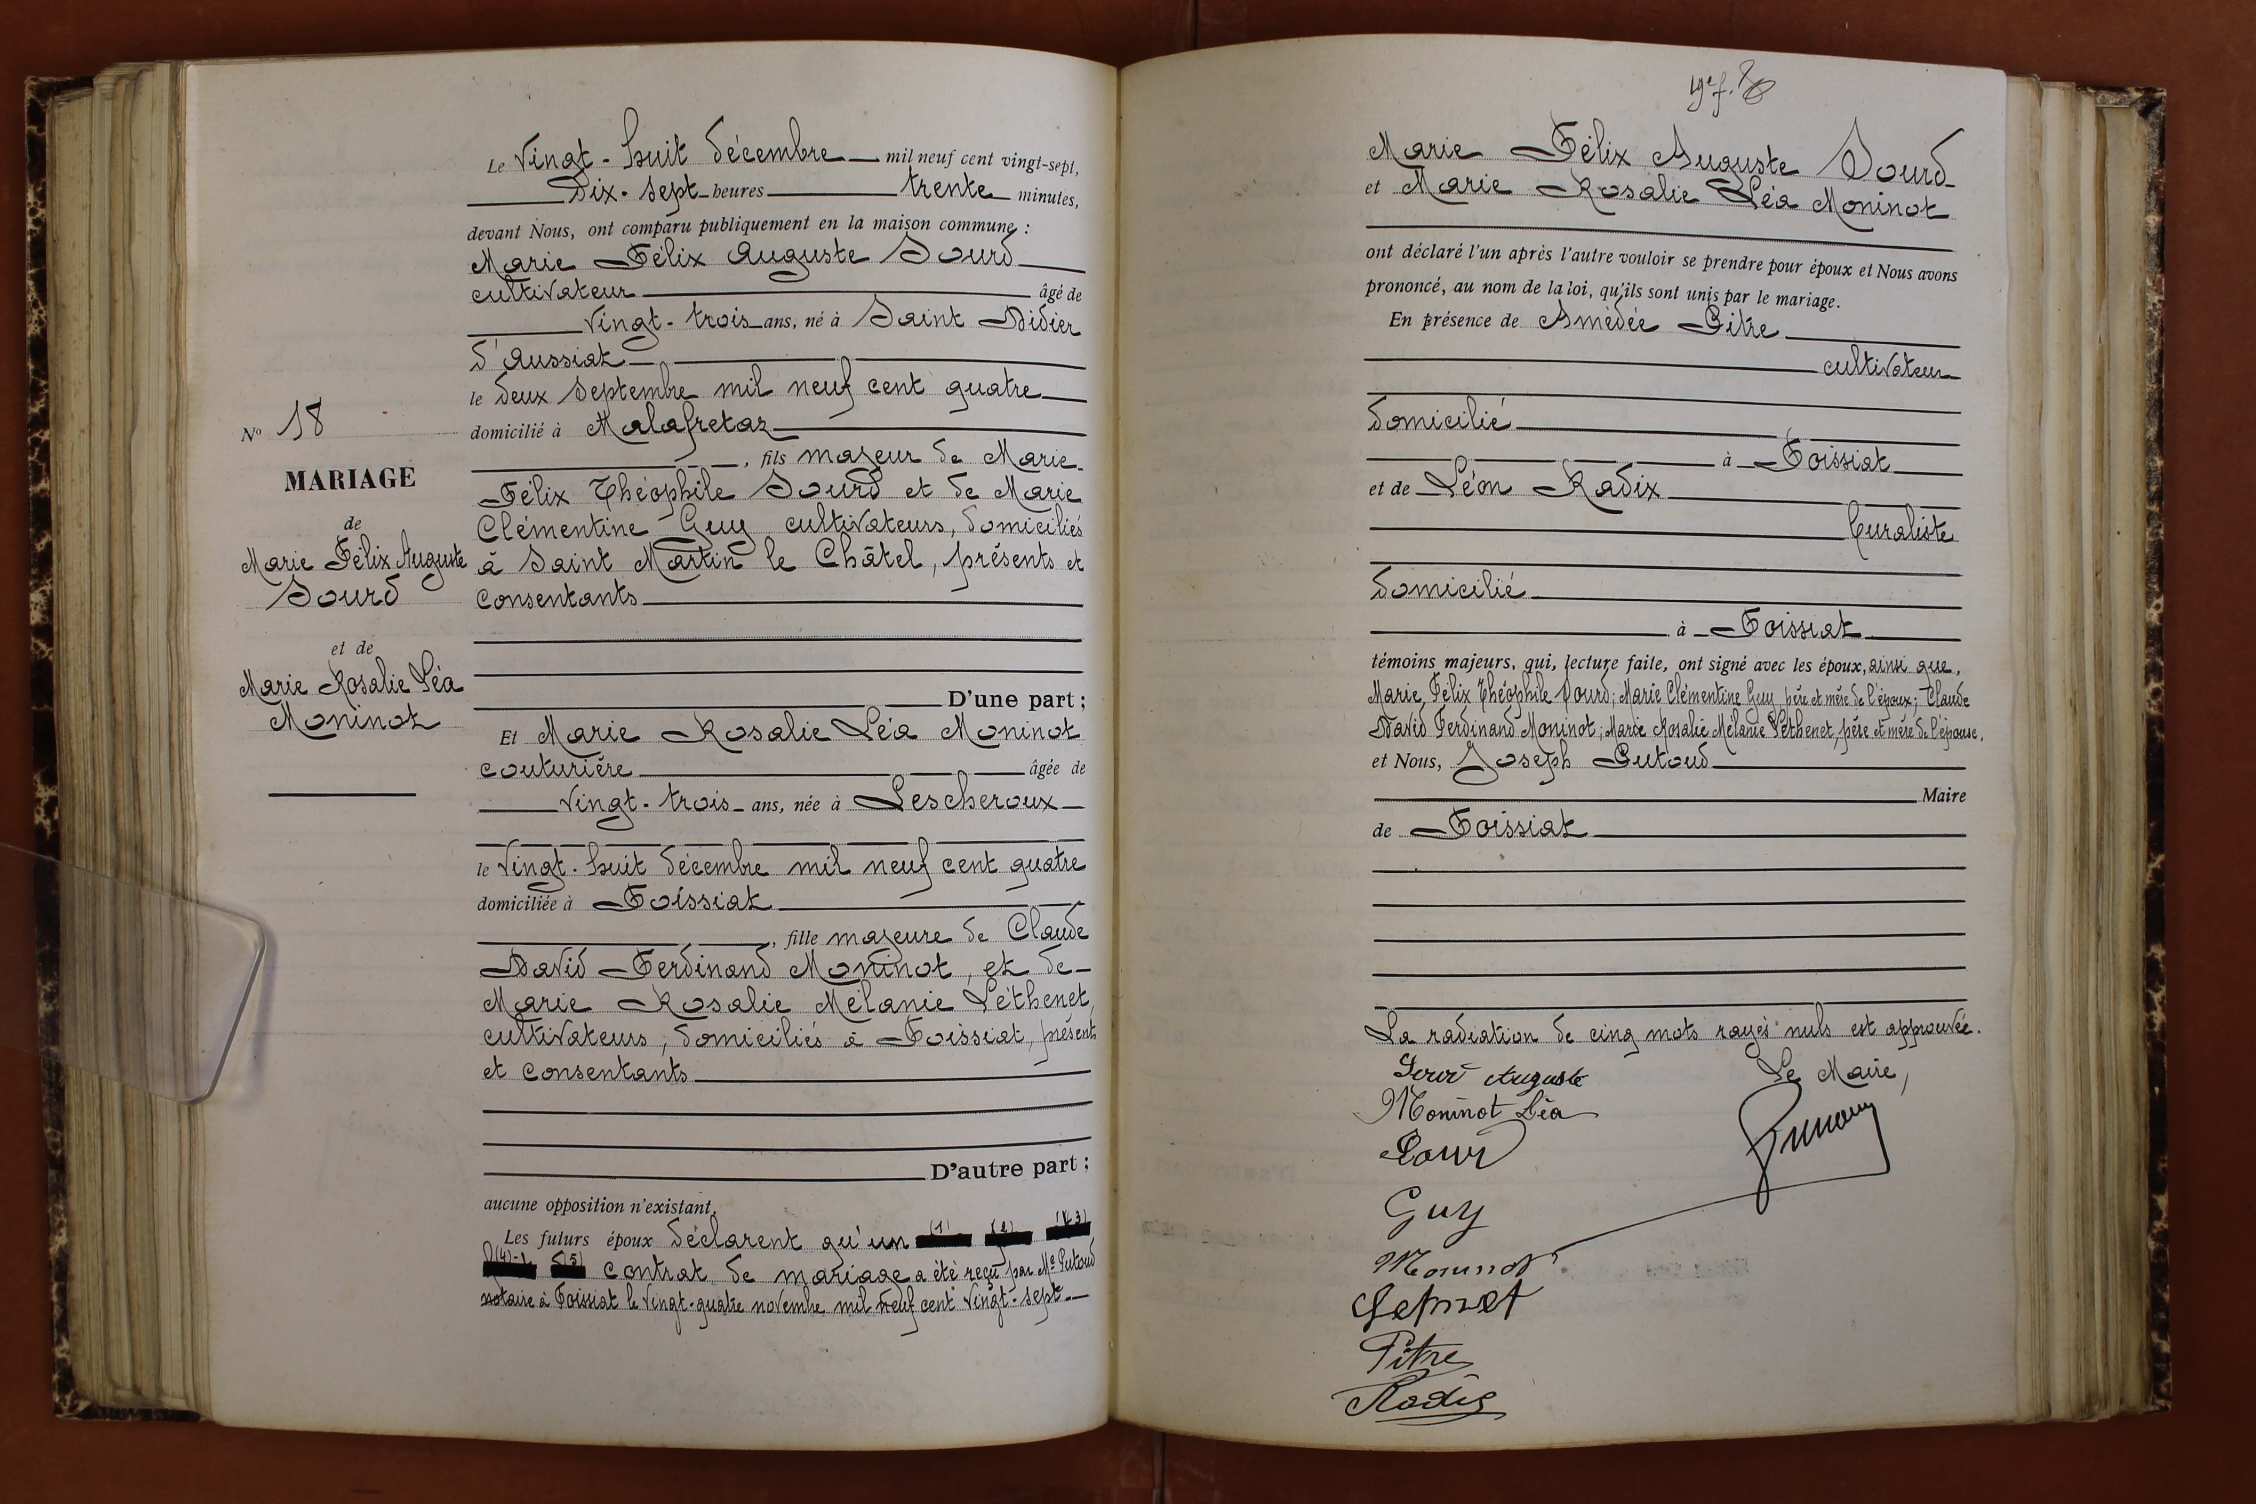 Le Vingt-huit décembre mil neuf cent vingt-sept,
Dix-sept heures trente minutes,
devant Nous, ont comparu publiquement en la maison commune :
Marie Félix Auguste Sourd
cultivateur âgé de
vingt-trois ans, né à Saint Didier
d'Aussiat
le deux septembre mil neuf cent quatre
domicilié à Malafretaz
, fils majeur de Marie
Félix Théophile Sourd et de Marie
Clémentine Guy cultivateurs, domiciliés
à Saint Martin le Châtel, présents et
consentants
D'une part ;
Et Marie Rosalie Léa Moninot
couturière âgée de
vingt-trois ans, née à Lescheroux
le vingt-huit décembre mil neuf cent quatre
domiciliée à Foissiat
, fille majeure de Claude
David Ferdinand Moninot, et de
Marie Rosalie Mélanie Péthenet,
cultivateurs, domiciliés à Foissiat, présents
et consentants
D'autre part ;
aucune opposition n'existant,
Les futurs époux déclarent qu'un (1) (2) (3)
(4) (5) contrat de mariage a été reçu par Me Putoud
notaire à Foissiat le vingt-quatre novembre mil neuf cent vingt-sept
No 18
MARIAGE
de
Marie Félix Auguste
Sourd
et de
Marie Rosalie Léa
Moninot
19e f.
Marie Félix Auguste Sourd
et Marie Rosalie Léa Moninot
ont déclaré l'un après l'autre vouloir se prendre pour époux et Nous avons
prononcé, au nom de la loi, qu'ils sont unis par le mariage.
En présence de Amédée Pitre
cultivateur
domicilié
à Foissiat
et de Léon Radix
buraliste
domicilié
à Foissiat
témoins majeurs, qui, lecture faite, ont signé avec les époux, ainsi que,
Marie, Félix Théophile Sourd; Marie Clémentine Guy père et mère de l'époux; Claude
David Ferdinand Moninot; Marie Rosalie Mélanie Péthenet, père et mère de l'épouse,
et Nous, Joseph Putoud
Maire
de Foissiat
La radiation de cinq mots rayés nuls est approuvée.
Sourd Auguste
Le Maire,
Moninot Léa
Sourd
Guy
Moninot
Pitre
Radix